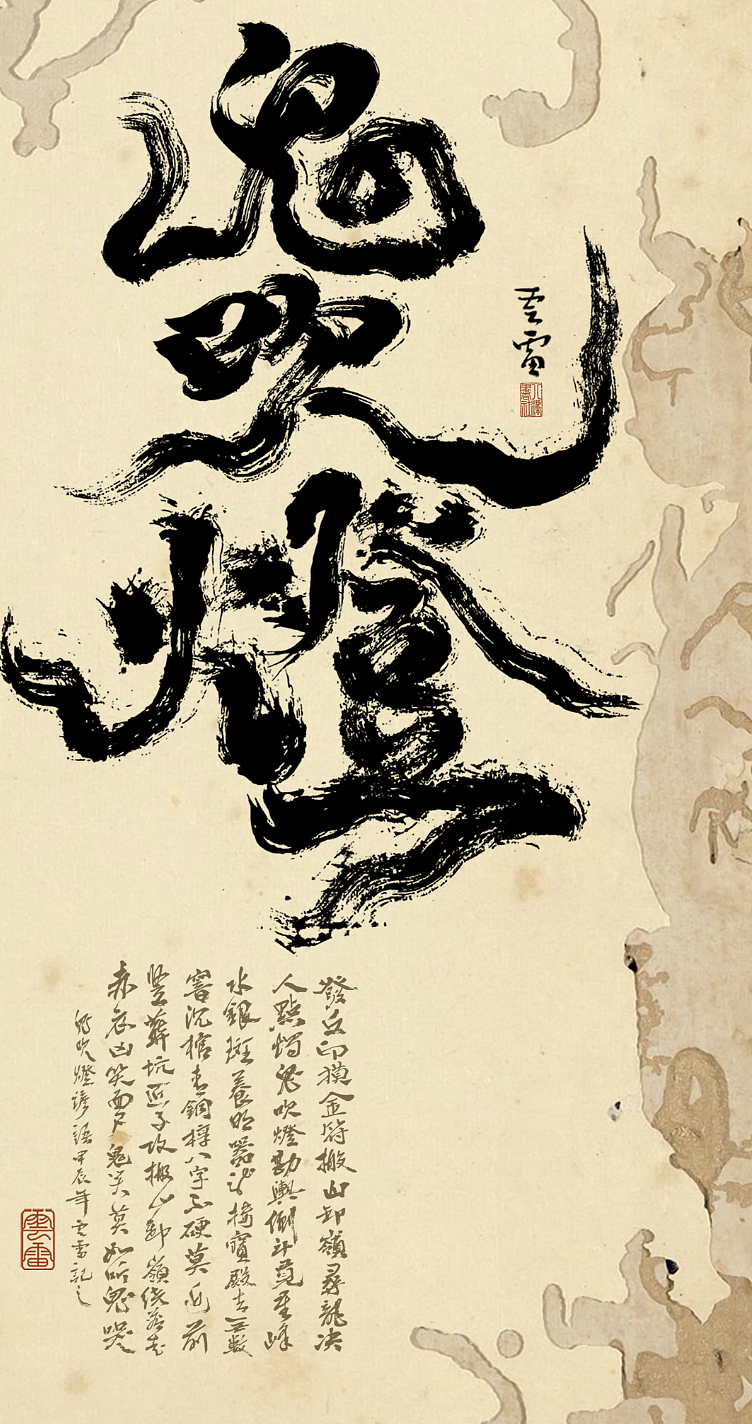 鬼吹燈
云雷
發丘印摸金符搬山卸嶺尋龍決
人點燭鬼吹燈勘輿倒斗覓星峰
水銀斑養明器龍樓寶殿去無數
窨沉棺青銅槨八字不硬莫近前
豎葬坑匠子坟搬山卸嶺繞著走
赤衣凶笑面尸鬼笑莫如听鬼哭
鬼吹燈諺語甲辰年云雷記之
雲雷